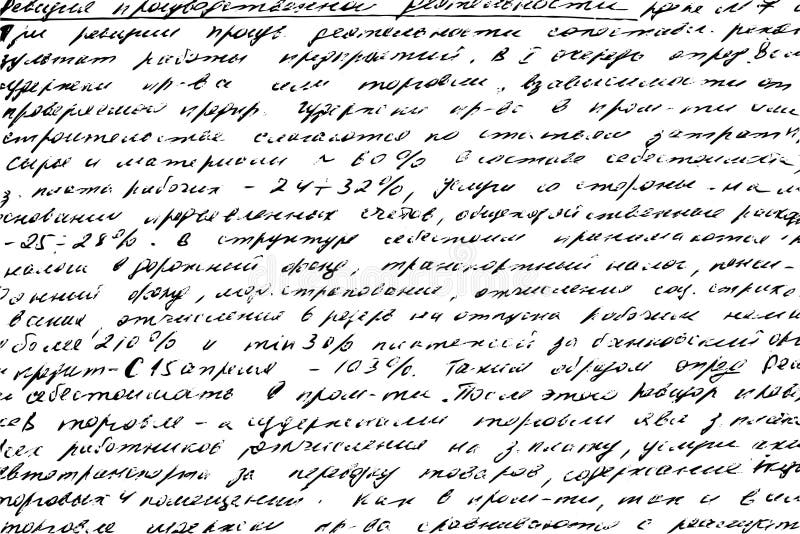 Ревизия производственной деятельности
При ревизии произв. деятельности сопоставл.
зультат работы предприятий. В I очередь опред.
издержки пр-ва или торговли, взависимости от
проверяемой предпр. Издержки пр-ва в пром-ти или
строительстве слагаются по статьям затрат
сырье и материали ~ 60% в составе себестоимости,
з. плата рабочих - 24÷32%, услуги со стороны - на
основании предъявленных счетов, общехозяйственные расхо
- 25÷28%. В структуре себестоим принимаются
налоги в дорожный фонд, транспортный налог, пенси-
онный фонд, мед. страхование, отчисления соц. страхо
вания, отчисления в резерв на отпуска рабочим
более 210% и min 30% платежей за банковский
кредит - С 15 апреля - 103%. Таким образом опред
себестоимость в пром-ти. После этого ревизор
в торговле - а издержками торговли явл з. плата
всех работников отчисления на з. плату, услуги
автотранспорта за перевозку товаров, содержание
торговых помещений. Как в пром-ти, так и в
торговле издержки пр-ва сравниваются с